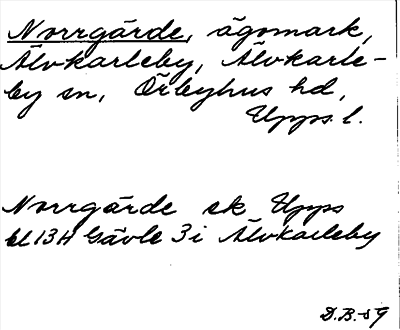 Norrgärde, ägomark,
Älvkarleby, Älvkarle-
by sn, Örbyhus hd,
Upps. l.
Norrgärde ek Upps
bl 13H Gävle 3i Älvkarleby
D.B.-59